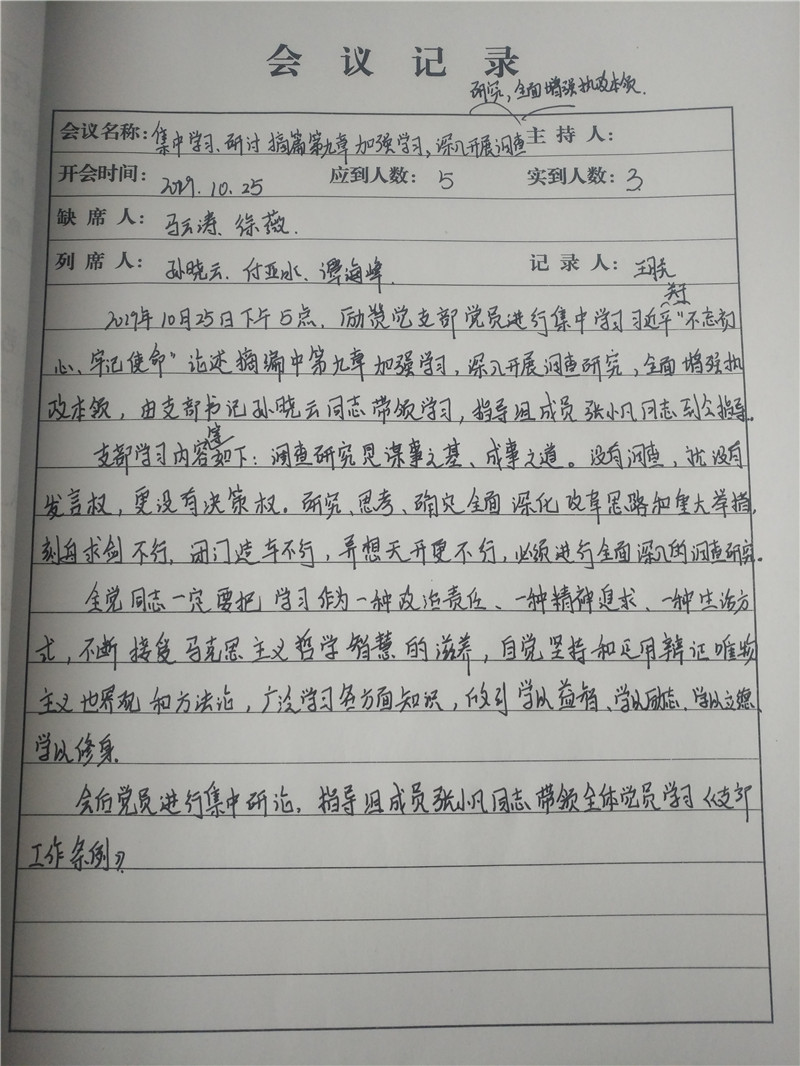 会议记录
研究，全面增强执政本领.
会议名称：集中学习、研讨摘篇第九章加强学习，深入开展调查 主持人：
开会时间：2019.10.25 应到人数：5 实到人数：3
缺席人：马云涛、徐薇.
列席人：孙晓云、付亚水、谭海峰. 记录人：王
2019年10月25日下午5点，励赞党支部党员进行集中学习习近平"不忘初
心、牢记使命"论述摘编中第九章加强学习，深入开展调查研究，全面增强执
政本领，由支部书记孙晓云同志带领学习，指导组成员张小凡同志到会指导.
支部学习内容如下：调查研究是谋事之基、成事之道。没有调查，就没有
发言权，更没有决策权。研究、思考、确定全面深化改革思路和重大举措，
刻舟求剑不行，闭门造车不行，异想天开更不行，必须进行全面深入的调查研究。
全党同志一定要把学习作为一种政治责任、一种精神追求、一种生活方
式，不断接受马克思主义哲学智慧的滋养，自觉坚持和运用辩证唯物
主义世界观和方法论，广泛学习各方面知识，做到学以益智、学以励志、学以立德、
学以修身.
会后党员进行集中研论，指导组成员张小凡同志带领全体党员学习《支部
工作条例》.